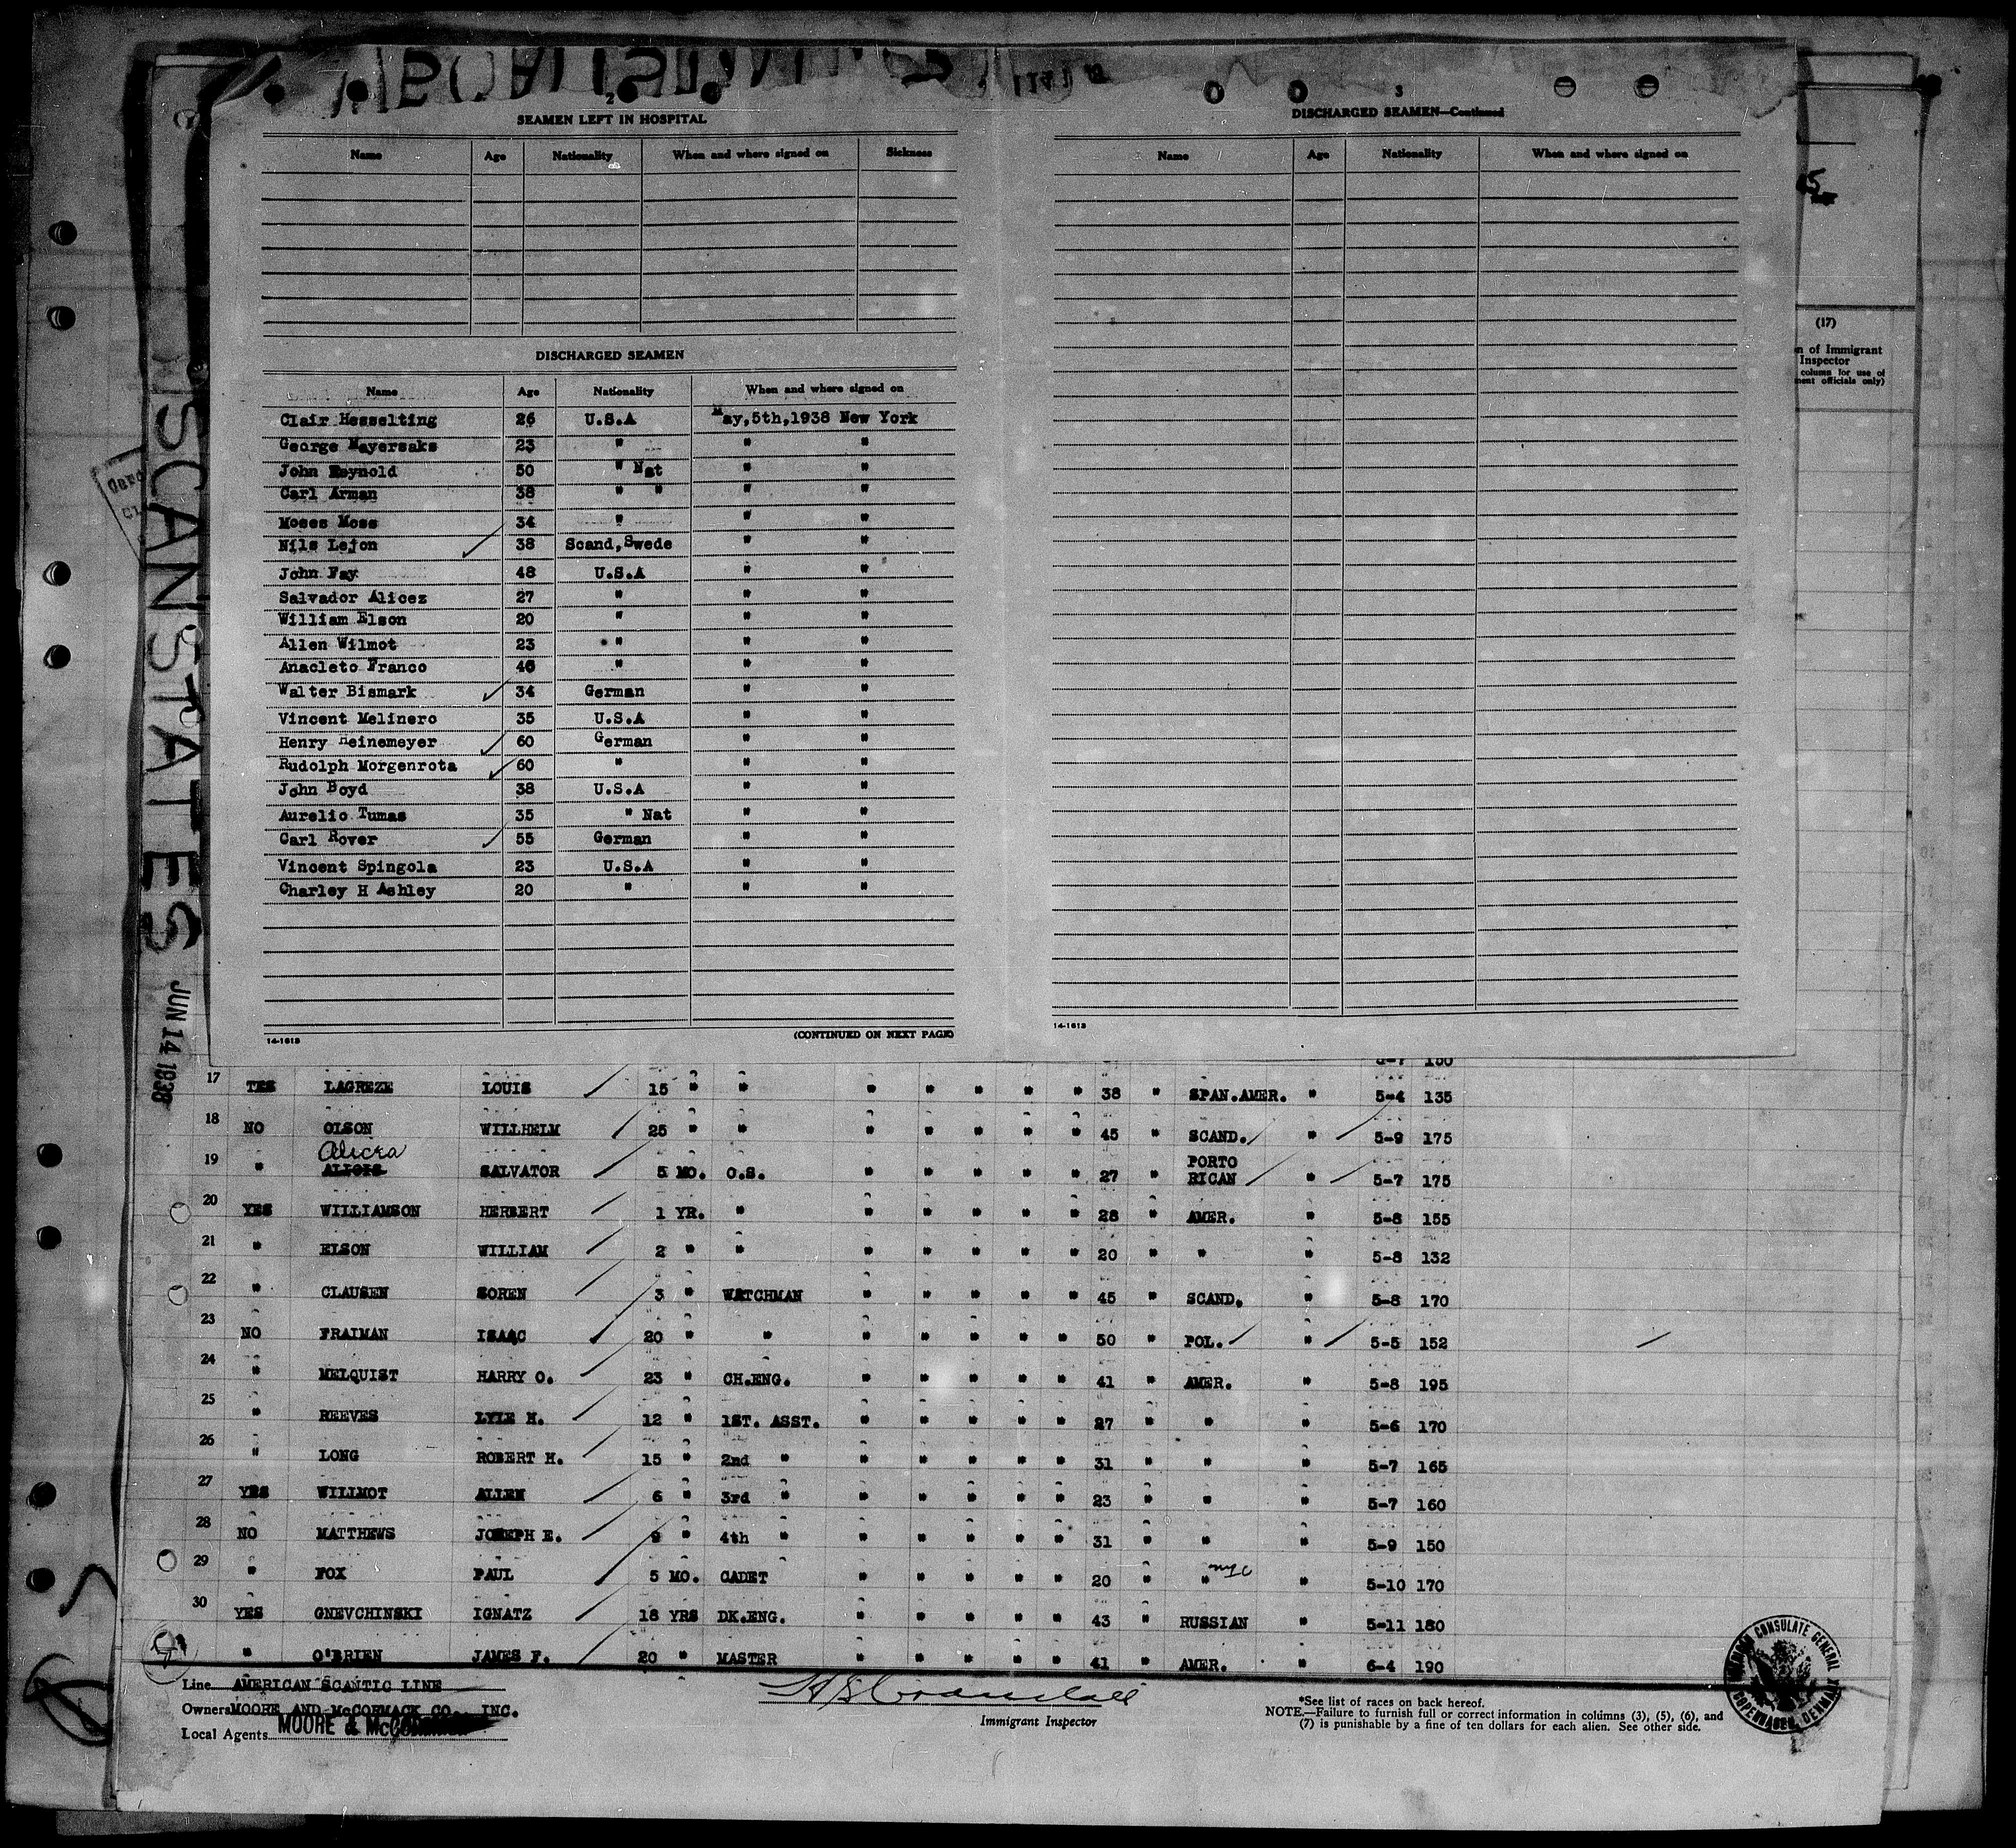 2
SEAMEN LEFT IN HOSPITAL
Name Age Nationality When and where signed on Sickness
DISCHARGED SEAMEN
Name Age Nationality When and where signed on
Clair Hesselting 26 U.S.A May,5th,1938 New York
George Mayersaks 23 " " "
John Reynold 50 " Nat " "
Carl Arman 38 " " " "
Moses Moss 34 " " "
Nils Lejon 38 Scand,Swede " "
John Fay 48 U.S.A " "
Salvador Alicez 27 " " "
William Elson 20 " " "
Allen Wilmot 23 " " "
Anacleto Franco 46 " " "
Walter Bismark 34 German " "
Vincent Melinero 35 U.S.A " "
Henry Heinemeyer 60 German " "
Rudolph Morgenrota 60 " " "
John Boyd 38 U.S.A " "
Aurelio Tumas 35 " Nat " "
Carl Rover 55 German " "
Vincent Spingola 23 U.S.A " "
Charley H Ashley 20 " " "
14-1613 (CONTINUED ON NEXT PAGE)
3
DISCHARGED SEAMEN—Continued
Name Age Nationality When and where signed on
14-1613
(17)
n of Immigrant
Inspector
column for use of
ment officials only)
SCANSTATES
JUN 14 1938
5-7 150
17 YES LAGREZE LOUIS 15 " " " " " " " 38 " SPAN.AMER. " 5-4 135
18 NO OLSON WILLHELM 25 " " " " " " " 45 " SCAND. " 5-9 175
Alicea
19 " ALICIS SALVATOR 5 MO. O.S. " " " " " 27 " PORTO RICAN " 5-7 175
20 YES WILLIAMSON HERBERT 1 YR. " " " " " " 28 " AMER. " 5-8 155
21 " ELSON WILLIAM 2 " " " " " " " 20 " " " 5-8 132
22 " CLAUSEN SOREN 3 " WATCHMAN " " " " " 45 " SCAND. " 5-8 170
23 NO FRAIMAN ISAAC 20 " " " " " " " 50 " POL. " 5-5 152
24 " MELQUIST HARRY O. 23 " CH.ENG. " " " " " 41 " AMER. " 5-8 195
25 " REEVES LYLE H. 12 " 1ST. ASST. " " " " " 27 " " " 5-6 170
26 " LONG ROBERT H. 15 " 2nd " " " " " " 31 " " " 5-7 165
27 YES WILLMOT ALLEN 6 " 3rd " " " " " " 23 " " " 5-7 160
28 NO MATTHEWS JOSEPH E. 9 " 4th " " " " " " 31 " " " 5-9 150
29 " FOX PAUL 5 MO. CADET " " " " " 20 " " nyc " 5-10 170
30 YES GNEVCHINSKI IGNATZ 18 YRS DK.ENG. " " " " " 43 " RUSSIAN " 5-11 180
" O'BRIEN JAMES F. 20 " MASTER " " " " " 41 " AMER. " 6-4 190
Line AMERICAN SCANTIC LINE
Owners MOORE AND McCORMACK CO., INC.
Local Agents MOORE & McCORMACK
Immigrant Inspector
*See list of races on back hereof.
NOTE.—Failure to furnish full or correct information in columns (3), (5), (6), and
(7) is punishable by a fine of ten dollars for each alien. See other side.
AMERICAN CONSULATE GENERAL
COPENHAGEN, DENMARK